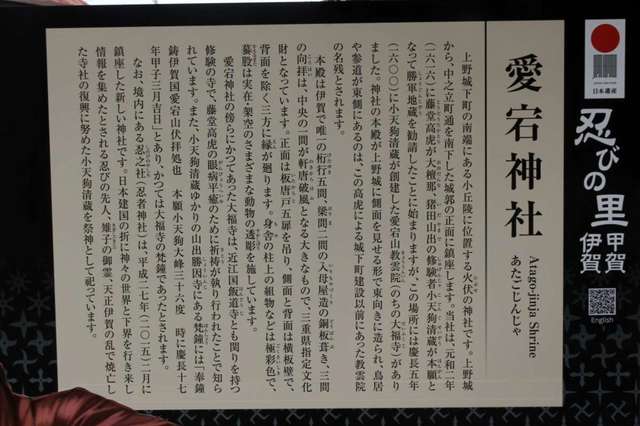 愛宕神社
Atago-jinja Shrine
あたごじんじゃ
上野城下町の南端にある小丘陵に位置する火伏の神社です。上野城
から、中之立町通を南下した城郭の正面に鎮座します。当社は、元和二年
(一六一六)に藤堂高虎が大檀那、猪田山出の修験者・小天狗清蔵が本願と
なって勝軍地蔵を勧請したことに始まりますが、この場所には慶長五年
(一六〇〇)に小天狗清蔵が創建した愛宕山教雲院(のちの大福寺)があり
ました。神社の本殿が上野城に側面を見せる形で東向きに造られ、鳥居
や参道が東側にあるのは、この高虎による城下町建設以前にあった教雲院
の名残とされます。
本殿は伊賀で唯一の桁行五間、梁間二間の入母屋造の銅板葺き、三間
の向拝は、中央の一間が軒唐破風となる大きなもので、三重県指定文化
財となっています。正面は板唐戸五扉を吊り、側面と背面は横板壁で、
背面を除く三方に縁が廻ります。身舎の柱上の組物などは極彩色で、
蟇股は実在・架空のさまざまな動物の透彫を施しています。
愛宕神社の傍らにかつてあった大福寺は、近江国飯道寺とも関りを持つ
修験の寺で、藤堂高虎の眼病平癒のために祈祷が執り行われたことで知ら
れています。また、小天狗清蔵ゆかりの山出勝因寺にある梵鐘には「奉鐘
鋳伊賀国愛宕山伏拝処也　本願小天狗大峰三十六度　時に慶長十七
年甲子三月吉日」とあり、かつては大福寺の梵鐘であったとされます。
なお、境内にある忍之社(忍者神社)は、平成二七年(二〇一五)二月に
鎮座した新しい神社です。日本建国の折に神々の世界と下界を行き来し
情報を集めたとされる忍びの先人、雉子の御霊、天正伊賀の乱で焼亡し
た寺社の復興に努めた小天狗清蔵を祭神として祀っています。
日本遺産
忍びの里
伊賀
甲賀
English